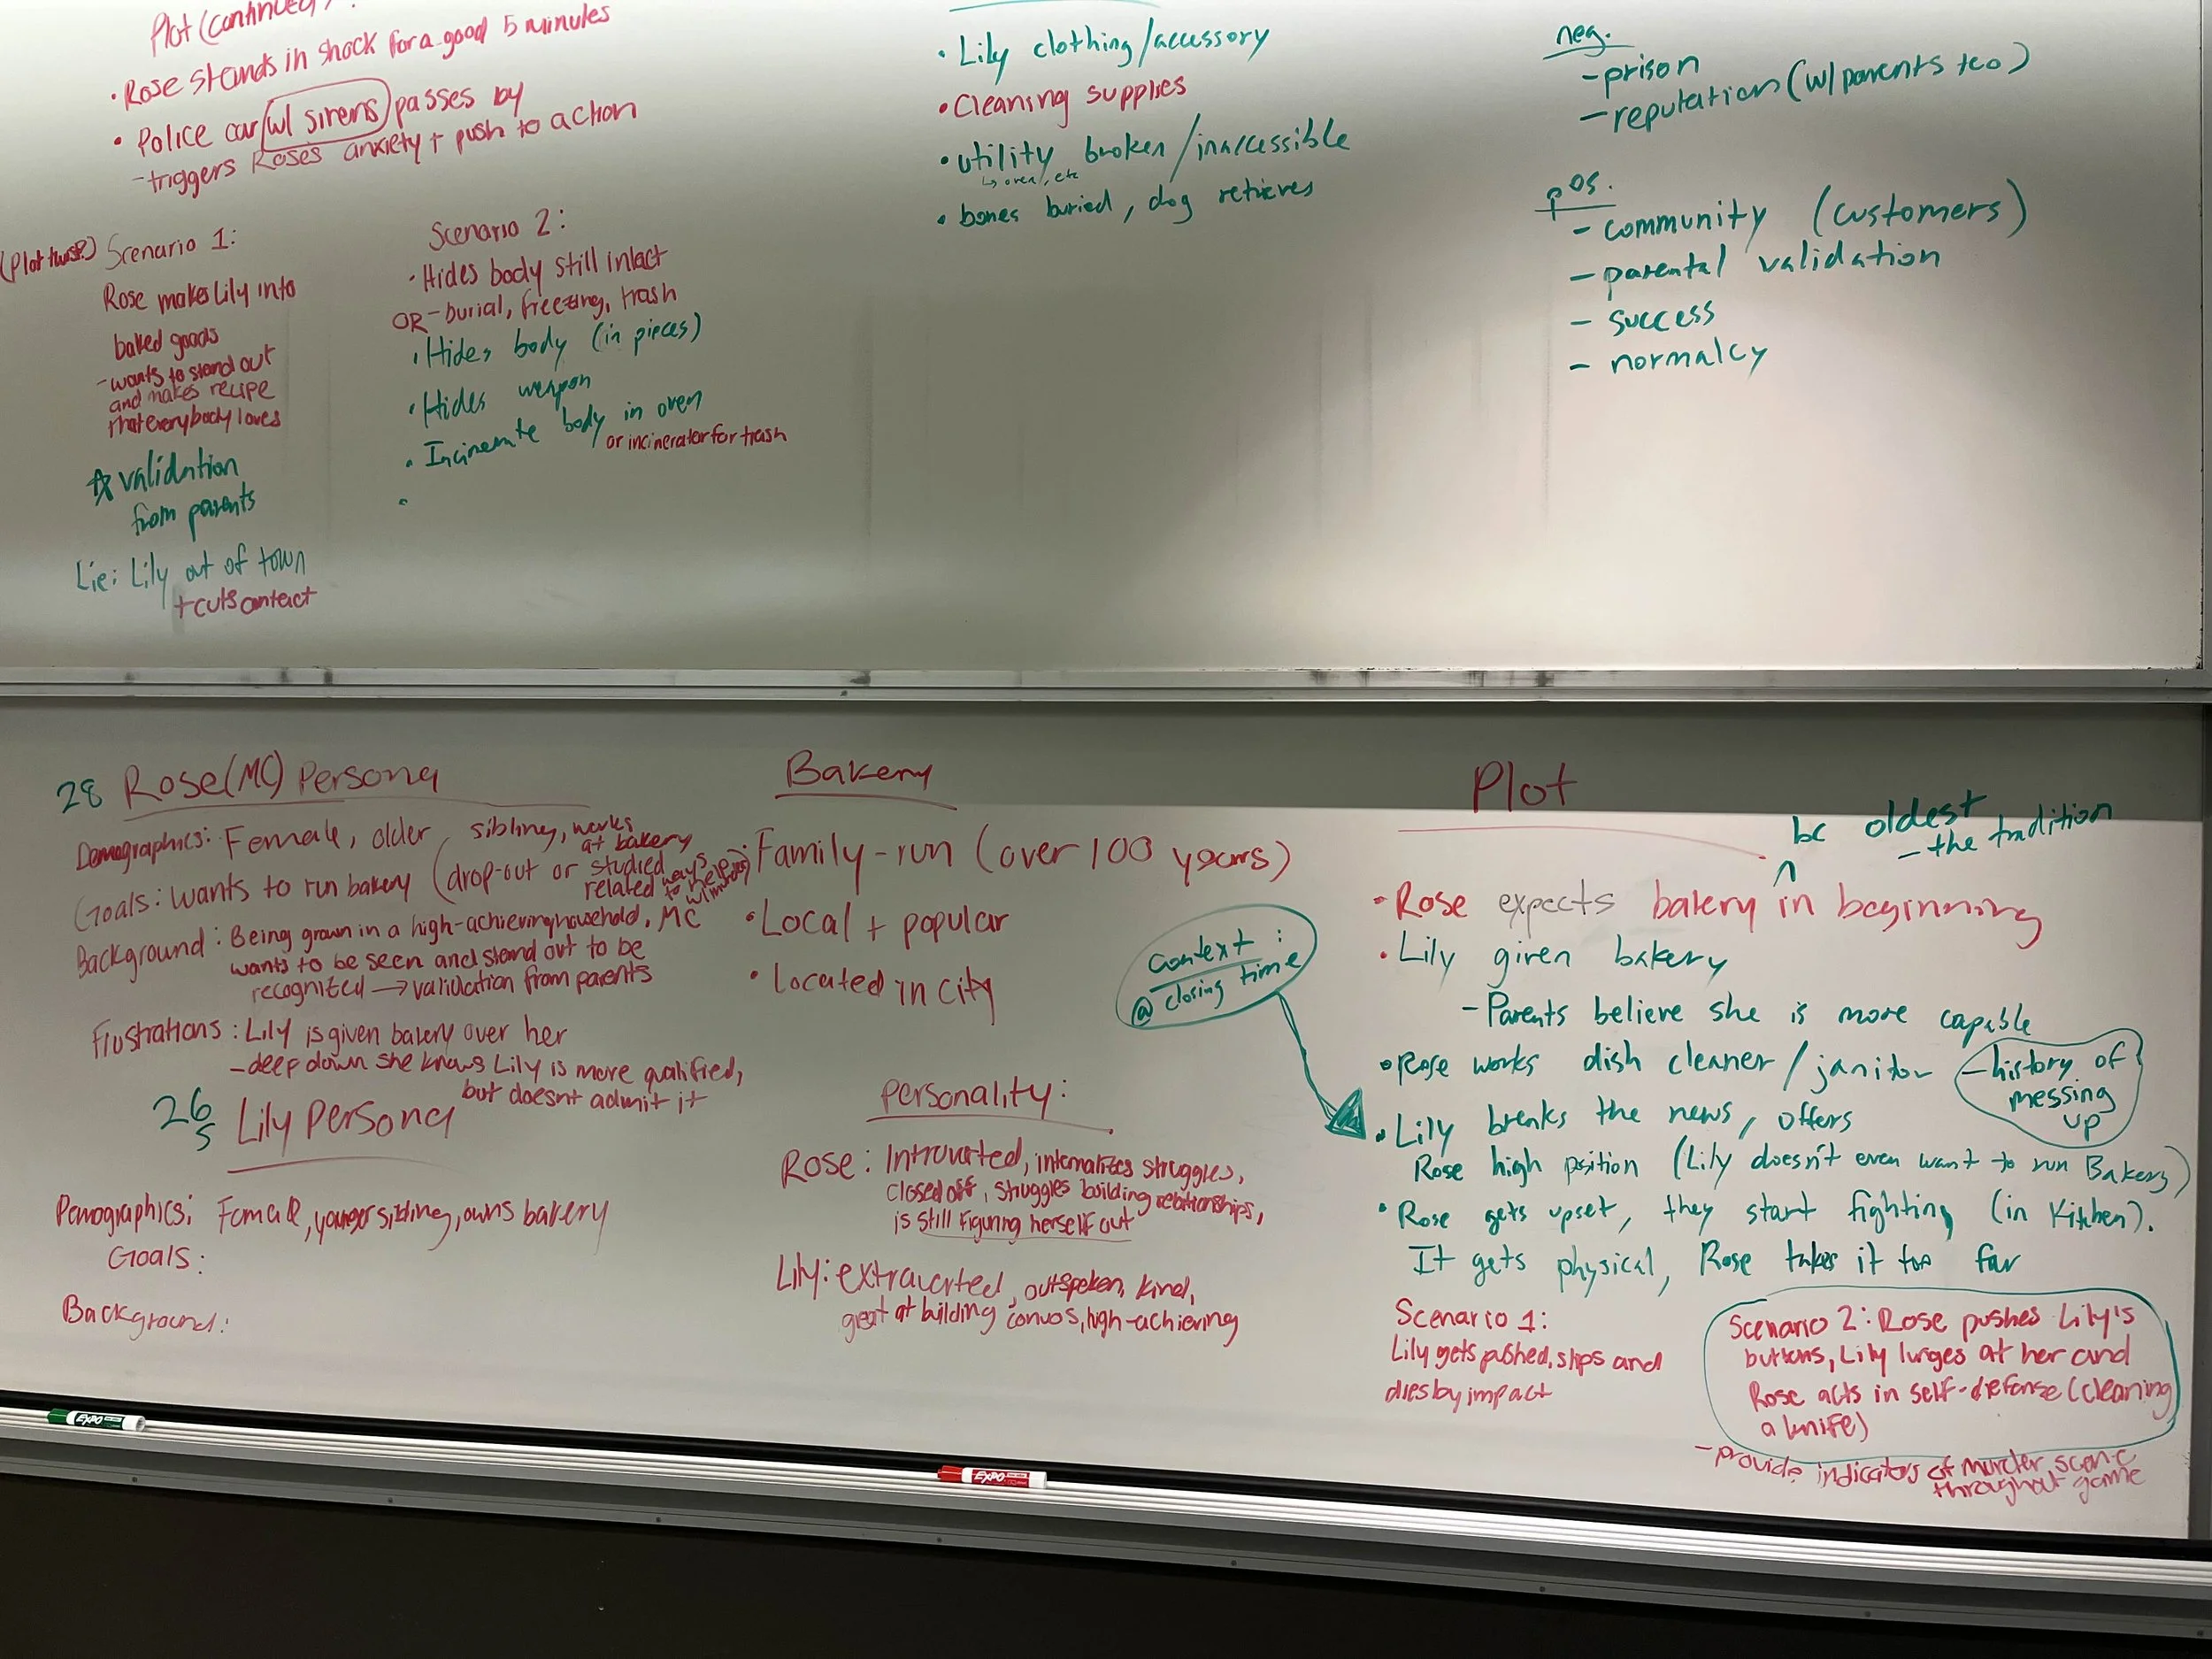 Plot (continued)
• Rose stands in shock for a good 5 minutes
• Police car (w/ sirens) passes by
- triggers Rose's anxiety + push to action
(Plot twist?) Scenario 1:
Rose makes Lily into
baked goods
- wants to stand out
and makes recipe
that everybody loves
☆ validation
from parents
Lie: Lily out of town
+ cuts contact
Scenario 2:
• Hides body still intact
OR - burial, freezing, trash
• Hides body (in pieces)
• Hides weapon
• Incinerate body in oven
or incinerator for trash
•
• Lily clothing/accessory
• Cleaning supplies
• utility broken/inaccessible
↳ oven, etc
• bones buried, dog retrieves
neg.
- prison
- reputation (w/ parents too)
pos.
- community (customers)
- parental validation
- success
- normalcy
28 Rose (MC) Persona
Demographics: Female, older sibling, works
at bakery
Goals: wants to run bakery (drop-out or studied
related ways
to help
w/ murder)
Background: Being grown in a high-achieving household, MC
wants to be seen and stand out to be
recognized → validation from parents
Frustrations: Lily is given bakery over her
- deep down she knows Lily is more qualified,
but doesnt admit it
26
5
Lily Persona
Demographics: Female, younger sibling, owns bakery
Goals:
Background:
Bakery
• Family-run (over 100 years)
• Local + popular
• Located in city
Personality:
Rose: Introverted, internalizes struggles,
closed off, struggles building relationships,
is still figuring herself out
Lily: extraverted, outspoken, kind,
great at building convos, high-achieving
context:
@ closing time
Plot
bc oldest
- the tradition
• Rose expects bakery in beginning
• Lily given bakery
- Parents believe she is more capable
• Rose works dish cleaner/janitor
- history of
messing
up
• Lily breaks the news, offers
Rose high position (Lily doesn't even want to run Bakery)
• Rose gets upset, they start fighting (in Kitchen).
It gets physical, Rose takes it too far
Scenario 1:
Lily gets pushed, slips and
dies by impact
Scenario 2: Rose pushes Lily's
buttons, Lily lunges at her and
Rose acts in self-defense (cleaning
a knife)
- provide indicators of murder scene
throughout game
EXPO
EXPO